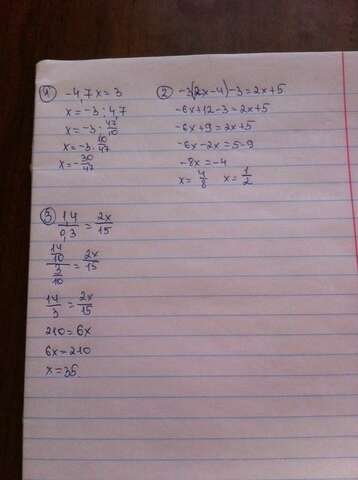 1) -4,7x=3
x=-3:4,7
x=-3:47/10
x=-3·10/47
x=-30/47
2) -3(2x-4)-3=2x+5
-6x+12-3=2x+5
-6x+9=2x+5
-6x-2x=5-9
-8x=-4
x=4/8 x=1/2
3) 1,4/0,3=2x/15
14/10/3/10=2x/15
14/3=2x/15
210=6x
6x=210
x=35